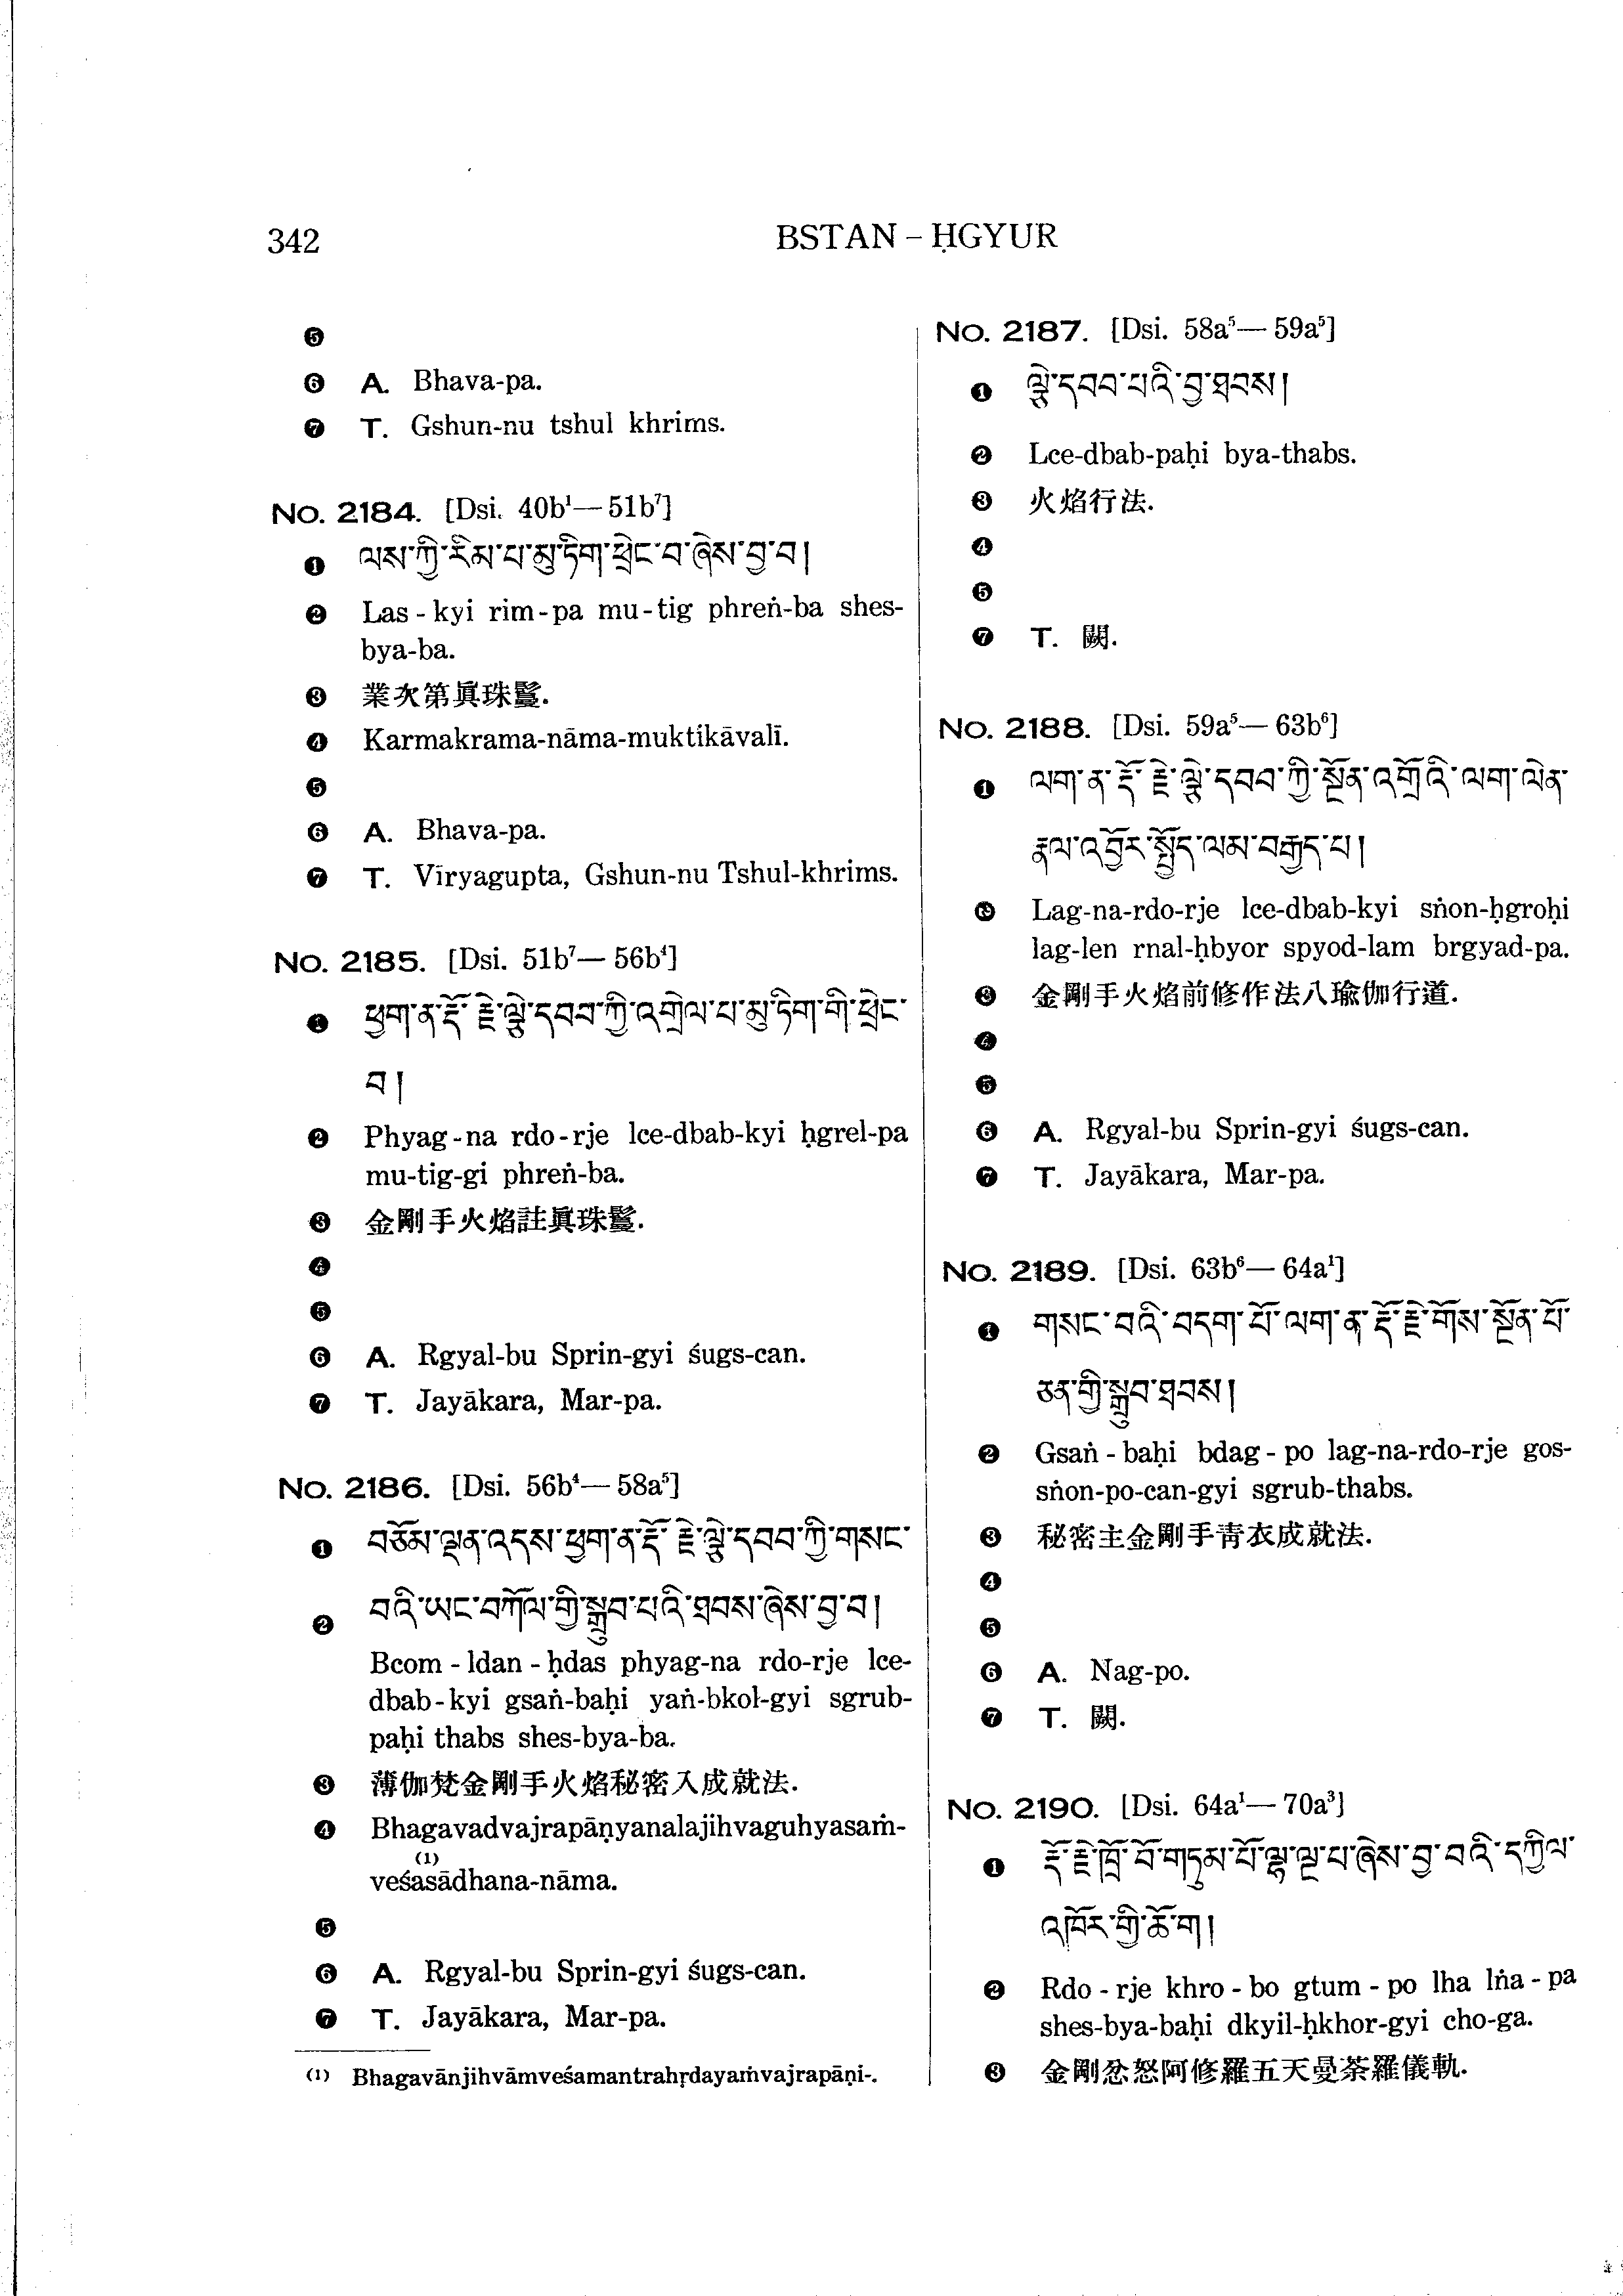 342
BSTAN – ḤGYUR
❺
❻ A. Bhava-pa.
❼ T. Gshun-nu tshul khrims.
No. 2184. [Dsi. 40b¹—51b⁷]
❶ ལས་ཀྱི་རིམ་པ་མུ་ཏིག་ཕྲེང་བ་ཞེས་བྱ་བ།
❷ Las-kyi rim-pa mu-tig phreṅ-ba shes-
bya-ba.
❸ 業次第眞珠鬘.
❹ Karmakrama-nāma-muktikāvalī.
❺
❻ A. Bhava-pa.
❼ T. Vīryagupta, Gshun-nu Tshul-khrims.
No. 2185. [Dsi. 51b⁷—56b⁴]
❶ ཕྱག་ན་རྡོ་རྗེ་ལྕེ་དབབ་ཀྱི་འགྲེལ་པ་མུ་ཏིག་གི་ཕྲེང་
བ།
❷ Phyag-na rdo-rje lce-dbab-kyi ḥgrel-pa
mu-tig-gi phreṅ-ba.
❸ 金剛手火焰註眞珠鬘.
❹
❺
❻ A. Rgyal-bu Sprin-gyi śugs-can.
❼ T. Jayākara, Mar-pa.
No. 2186. [Dsi. 56b⁴—58a⁵]
❶ བཅོམ་ལྡན་འདས་ཕྱག་ན་རྡོ་རྗེ་ལྕེ་དབབ་ཀྱི་གསང་
བའི་ཡང་བཀོལ་གྱི་སྒྲུབ་པའི་ཐབས་ཞེས་བྱ་བ།
❷ Bcom-ldan-ḥdas phyag-na rdo-rje lce-
dbab-kyi gsaṅ-baḥi yaṅ-bkol-gyi sgrub-
paḥi thabs shes-bya-ba.
❸ 薄伽梵金剛手火焰秘密入成就法.
❹ Bhagavadvajrapāṇyanalajihvaguhyasaṁ-
veśa⁽¹⁾sādhana-nāma.
❺
❻ A. Rgyal-bu Sprin-gyi śugs-can.
❼ T. Jayākara, Mar-pa.
(1) Bhagavānjihvāmveśamantrahṛdayaṁvajrapāṇi-.
No. 2187. [Dsi. 58a⁵—59a⁵]
❶ ལྕེ་དབབ་པའི་བྱ་ཐབས།
❷ Lce-dbab-paḥi bya-thabs.
❸ 火焰行法.
❹
❺
❼ T. 闕.
No. 2188. [Dsi. 59a⁵—63b⁶]
❶ ལག་ན་རྡོ་རྗེ་ལྕེ་དབབ་ཀྱི་སྔོན་འགྲོའི་ལག་ལེན་
རྣལ་འབྱོར་སྤྱོད་ལམ་བརྒྱད་པ།
❷ Lag-na-rdo-rje lce-dbab-kyi sṅon-ḥgroḥi
lag-len rnal-ḥbyor spyod-lam brgyad-pa.
❸ 金剛手火焰前修作法八瑜伽行道.
❹
❺
❻ A. Rgyal-bu Sprin-gyi śugs-can.
❼ T. Jayākara, Mar-pa.
No. 2189. [Dsi. 63b⁶—64a¹]
❶ གསང་བའི་བདག་པོ་ལག་ན་རྡོ་རྗེ་གོས་སྔོན་པོ་
ཅན་གྱི་སྒྲུབ་ཐབས།
❷ Gsaṅ-baḥi bdag-po lag-na-rdo-rje gos-
sṅon-po-can-gyi sgrub-thabs.
❸ 秘密主金剛手靑衣成就法.
❹
❺
❻ A. Nag-po.
❼ T. 闕.
No. 2190. [Dsi. 64a¹—70a³]
❶ རྡོ་རྗེ་ཁྲོ་བོ་གཏུམ་པོ་ལྷ་ལྔ་པ་ཞེས་བྱ་བའི་དཀྱིལ་
འཁོར་གྱི་ཆོ་ག།
❷ Rdo-rje khro-bo gtum-po lha lṅa-pa
shes-bya-baḥi dkyil-ḥkhor-gyi cho-ga.
❸ 金剛忿怒阿修羅五天曼荼羅儀軌.